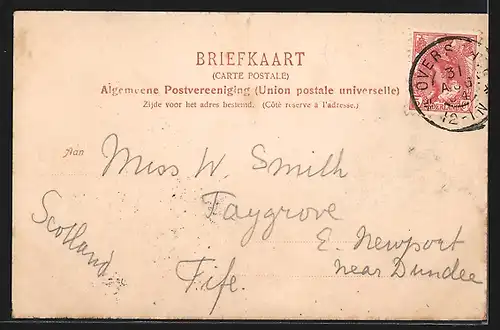 BRIEFKAART
(CARTE POSTALE)
Algemeene Postvereeniging (Union postale universelle)
Zijde voor het adres bestemd. (Côté réservé à l'adresse.)
OVERS
31
AUG
12-1N
Aan
Miss W. Smith
Taygrove
E. Newport
near Dundee
Fife.
Scotland